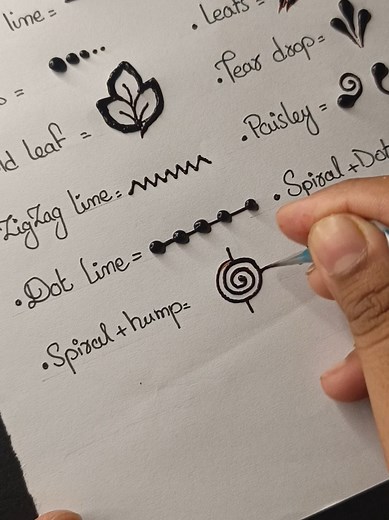 line =
. Leafs =
. Tear drop =
leaf =
. Paisley =
ZigZag line =
. Spiral + Dot
. Dot Line =
. Spiral + hump =